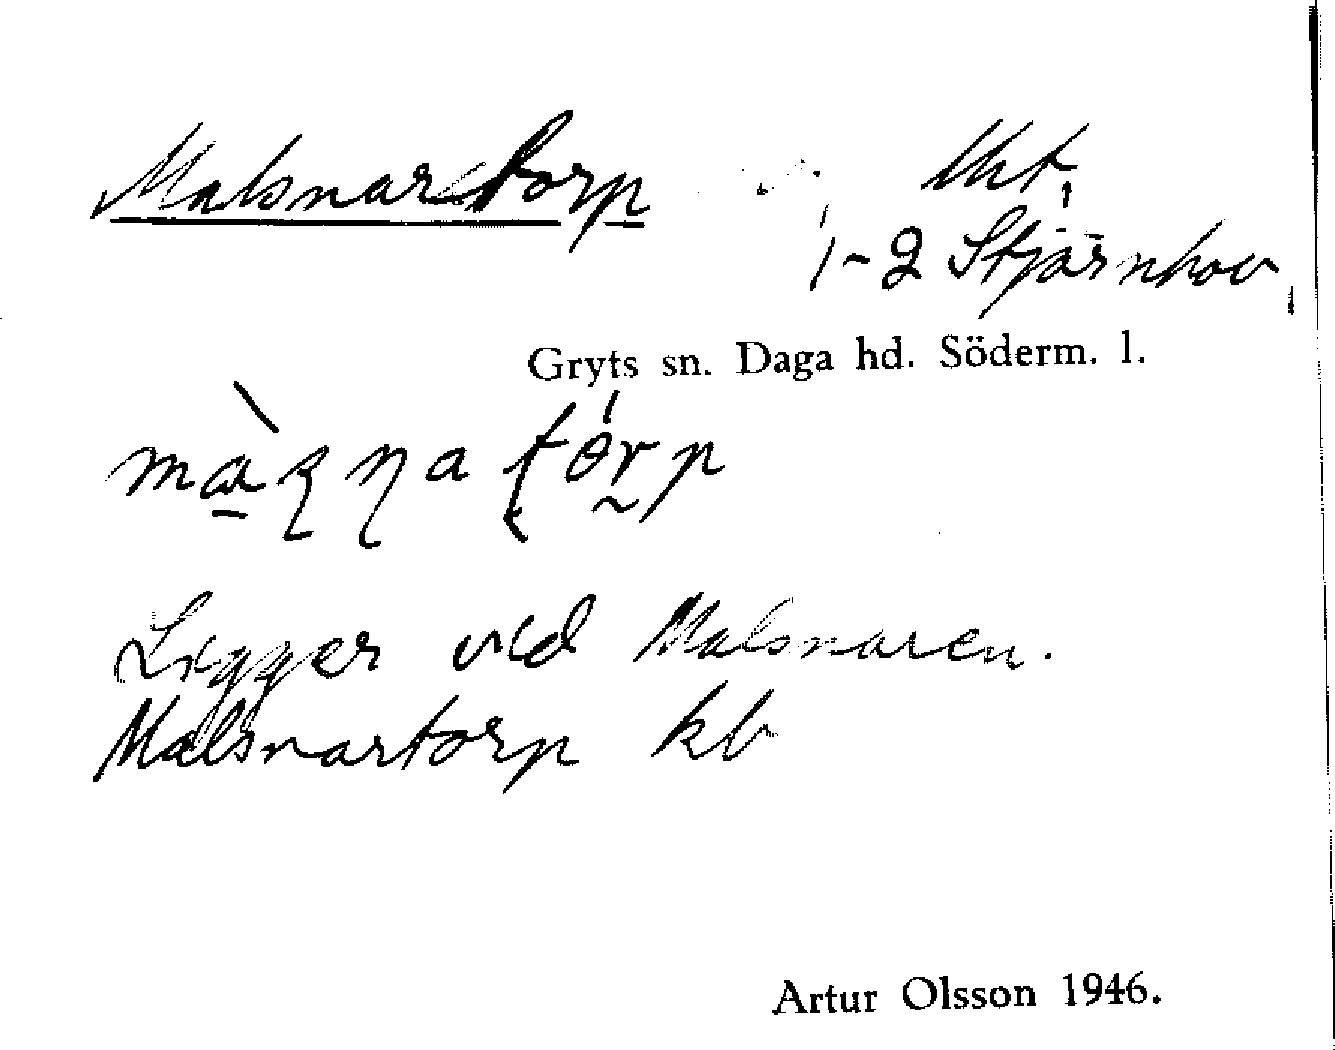 Malsnartorp lht,
1-2 Stjärnhov
Gryts sn. Daga hd. Söderm. l.
Ligger vid Malsnaren.
Malsnartorp kb
Artur Olsson 1946.